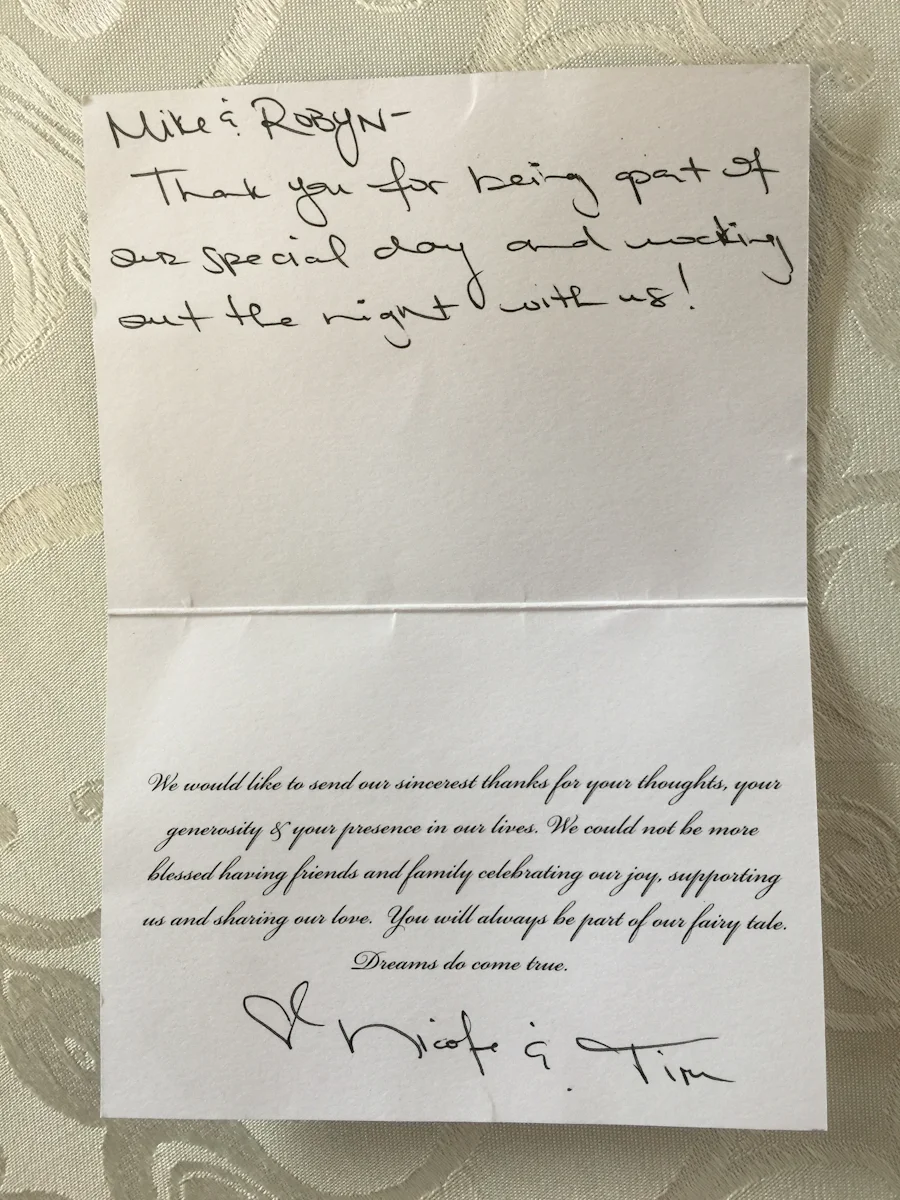 Mike & ROBYN-
Thank you for being part of
our special day and rocking
out the night with us!
We would like to send our sincerest thanks for your thoughts, your
generosity & your presence in our lives. We could not be more
blessed having friends and family celebrating our joy, supporting
us and sharing our love. You will always be part of our fairy tale.
Dreams do come true.
♡ Nicole & Tim